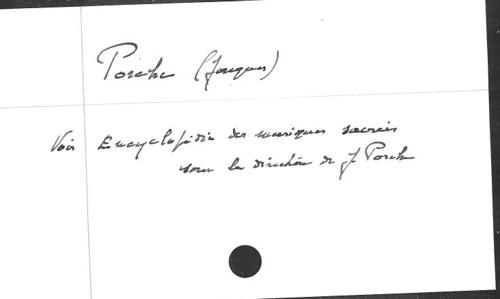 Porche (Jacques)
Voir Encyclopédie des musiques sacrées
sous la direction de J. Porche